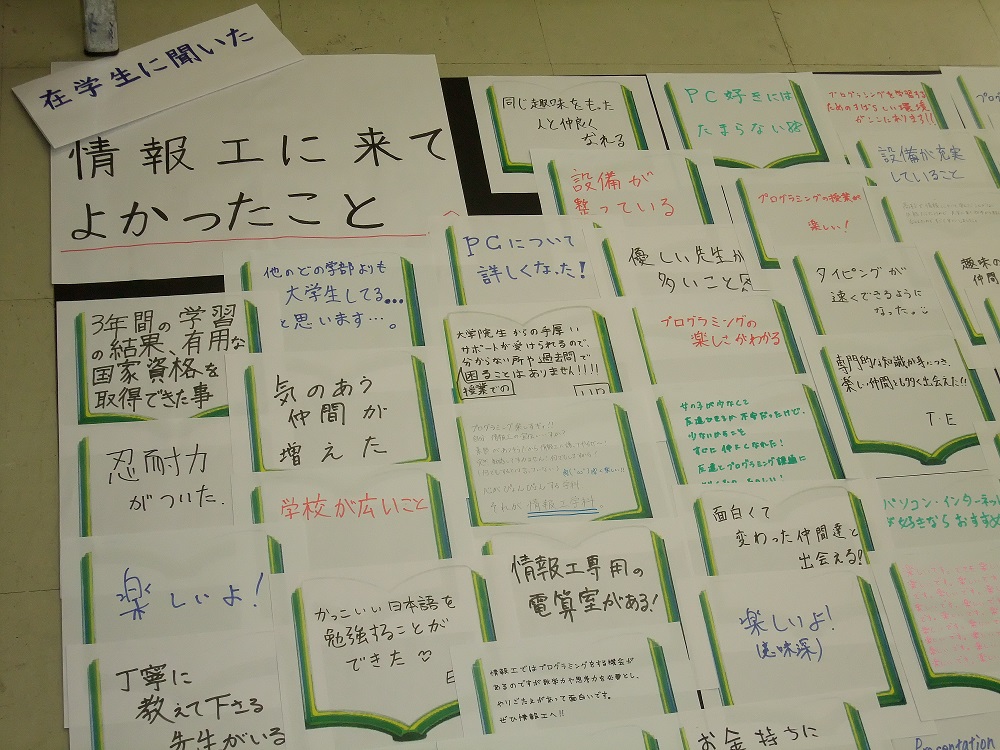 在学生に聞いた
情報工に来て
よかったこと
同じ趣味をもった
人と仲良く
なれる
PC好きには
たまらない
プログラミングを学習する
ためのすばらしい環境
がここにあります!!
設備が充実
していること
設備が
整っている
プログラミングの授業が
楽しい!
PCについて
詳しくなった!
優しい先生が
多いこと
タイピングが
速くできるように
なった。
趣味の
仲間
他のどの学部よりも
大学生してる...
と思います…。
3年間の学習
の結果、有用な
国家資格を
取得できた事
大学院生からの手厚い
サポートが受けられるので、
分からない所や過去問で
困ることはありません!!!!
授業での
プログラミングの
楽しさがわかる
専門的な知識が身につき、
楽しい仲間とも多く出会えた!!
T・E
気のあう
仲間が
増えた
忍耐力
がついた.
学校が広いこと
女の子が少なくて
友達できるか不安だったけど、
少ないからこそ
すぐに仲よくなれた!
友達とプログラミング
それが情報工学科
面白くて
変わった仲間達と
出会える!
パソコン・インターネット
好きならおすすめ
楽しいよ!
情報工専用の
電算室がある!
かっこいい日本語を
勉強することが
できた
楽しいよ!
(意味深)
丁寧に
教えて下さる
先生がいる
情報工ではプログラミングをする機会が
あるのですが数学力や思考力を必要とし、
やりごたえがあって面白いです。
ぜひ情報工へ!!
お金持ちに
Presentation